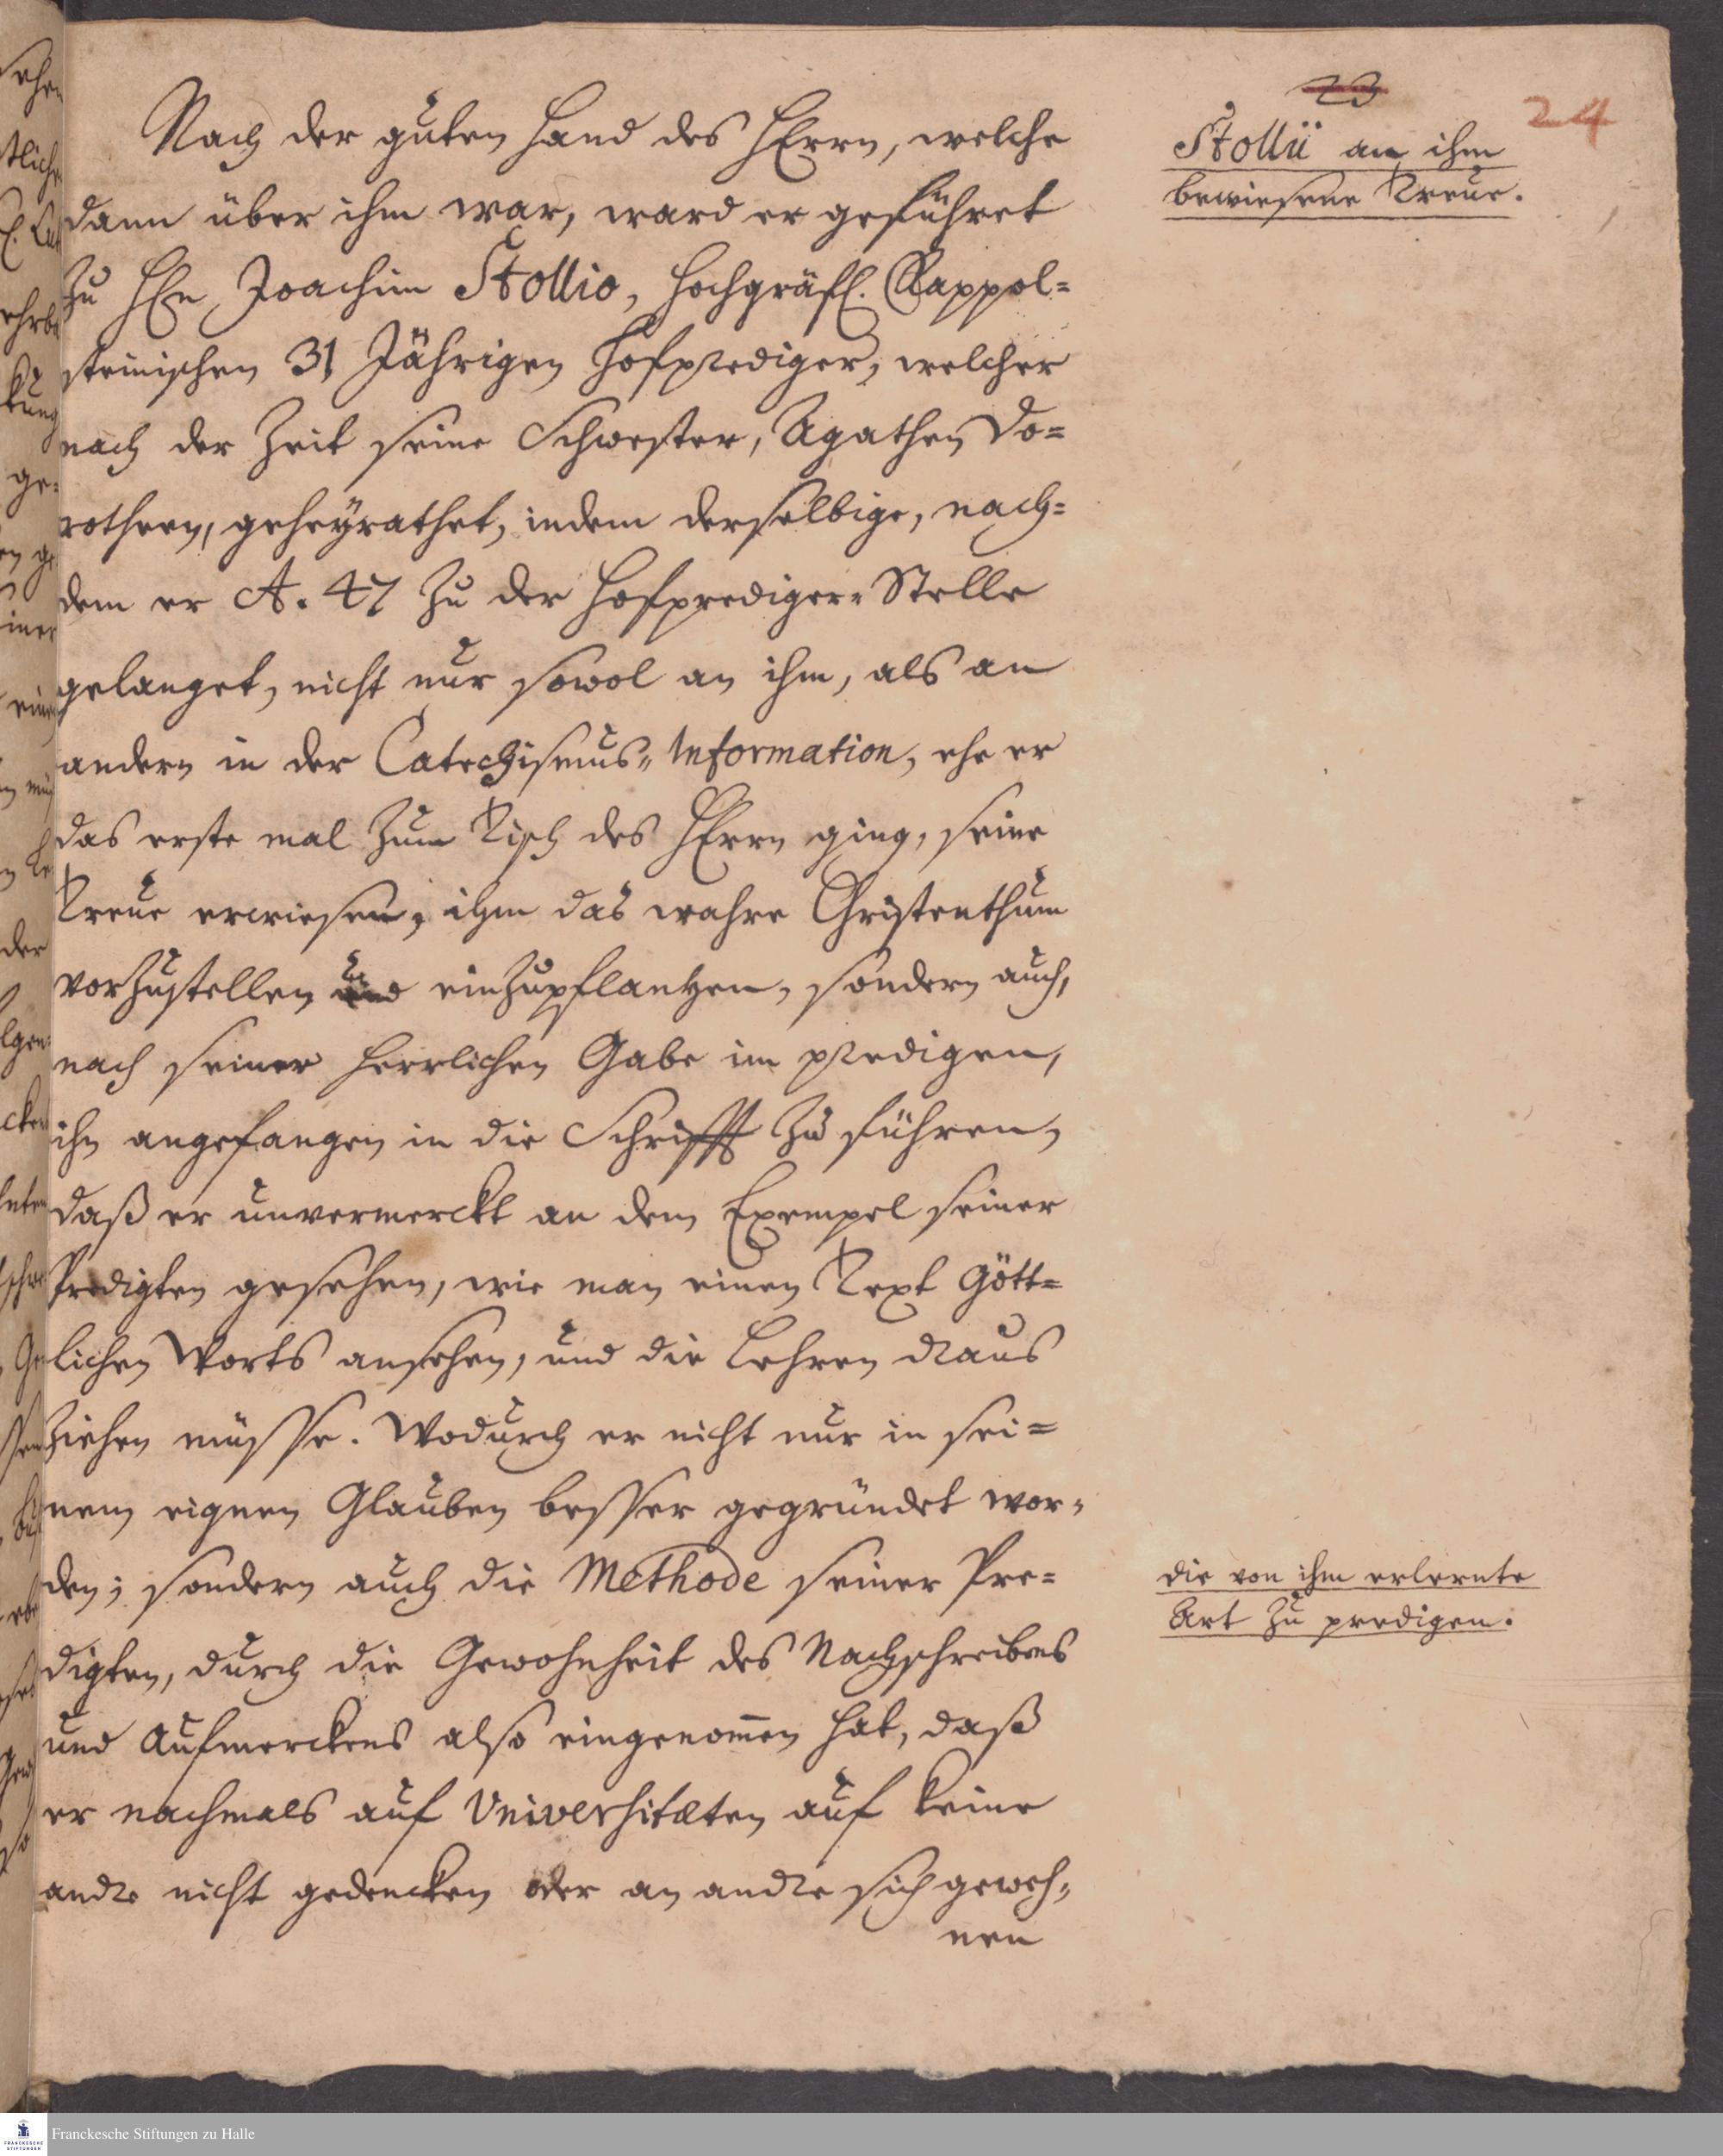 23
24
Stollii an ihm
bewiesene Treue.
Nach der guten Hand des HErrn, welche
dann über ihm war, ward er geführet
zu HEn Joachim Stollio, Hochgräfl. Rappol=
steinischen 31 Jährigen Hofprediger, welcher
nach der Zeit seine Schwester, Agathen Do=
rotheen, geheyrathet, indem derselbige, nach=
dem er A. 47 zu der Hofprediger=Stelle
gelanget, nicht nur sowol an ihm, als an
andern in der Catechismus=Information, ehe er
das erste mal zum Tisch des HErrn ging, seine
Treue erwiesen, ihm das wahre Christenthum
vorzustellen und einzupflantzen, sondern auch,
nach seiner herrlichen Gabe im predigen,
ihn angefangen in die Schrifft zu führen,
daß er unvermerckt an dem Exempel seiner
Predigten gesehen, wie man einen Text Gött=
lichen Worts ansehen, und die Lehren draus
ziehen müsse. Wodurch er nicht nur in sei=
nem eignen Glauben besser gegründet wor=
den; sondern auch die Methode seiner Pre=
digten, durch die Gewohnheit des Nachschreibens
und Aufmerckens also eingenom̄en hat, daß
er nachmals auf Universitæten auf keine
andre nicht gedencken oder an andre sich geweh=
nen
die von ihm erlernte
Art zu predigen.
Franckesche Stiftungen zu Halle